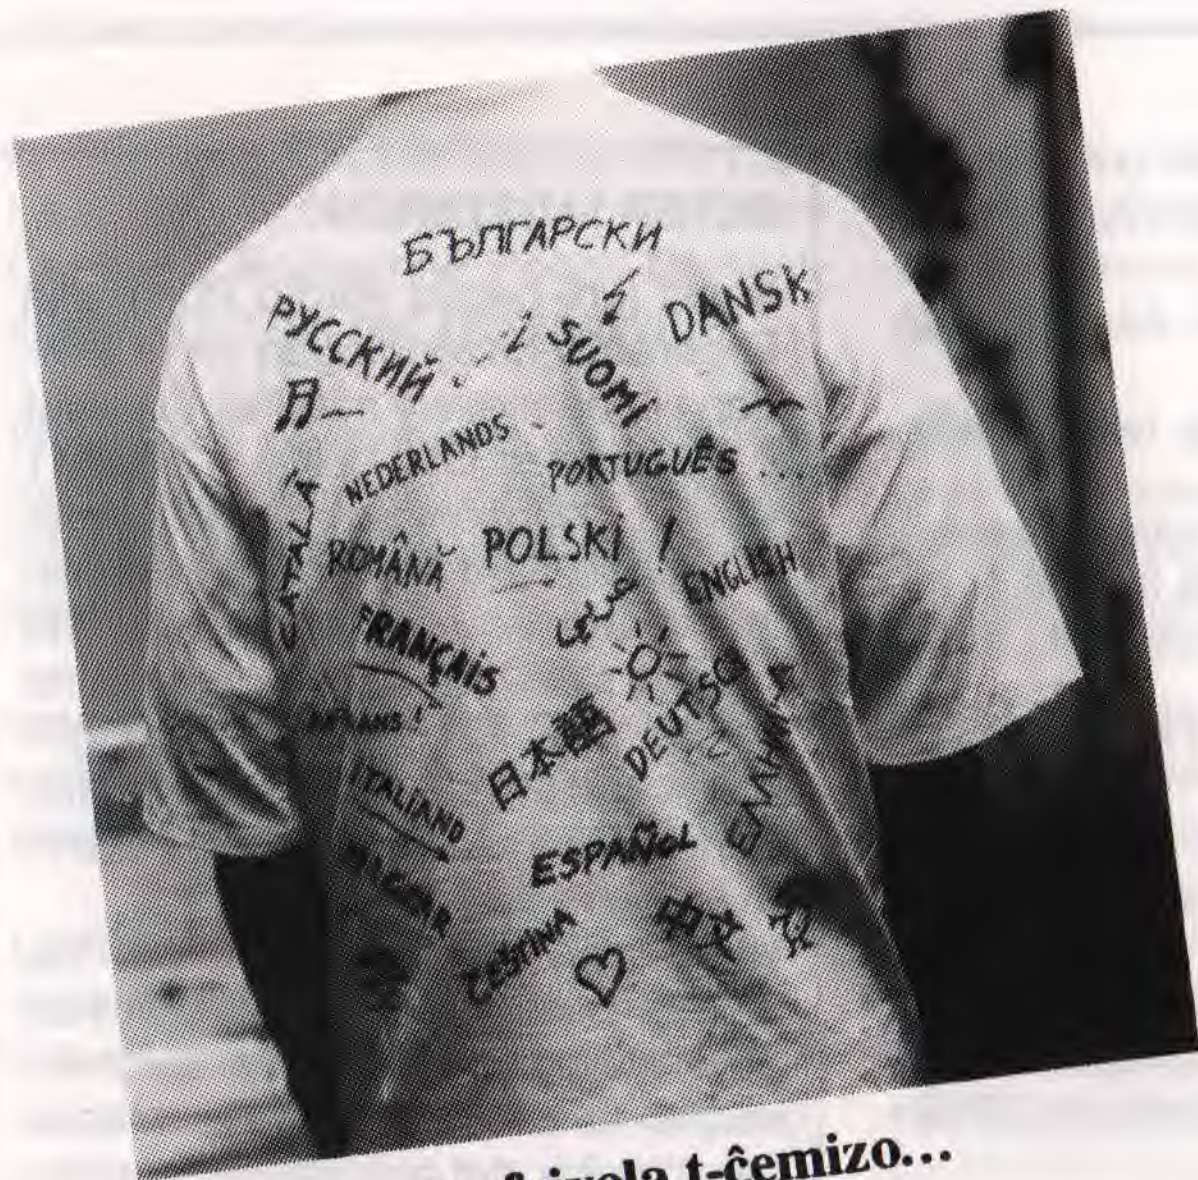 БЪЛГАРСКИ
РУССКИЙ
SUOMI
DANSK
NEDERLANDS
PORTUGUÊS
CATALÀ
ROMÂNĂ
POLSKI
ENGLISH
FRANÇAIS
عربي
DEUTSCH
日本語
ITALIANO
ESPAÑOL
ČEŠTINA
中文
t-ĉemizo...